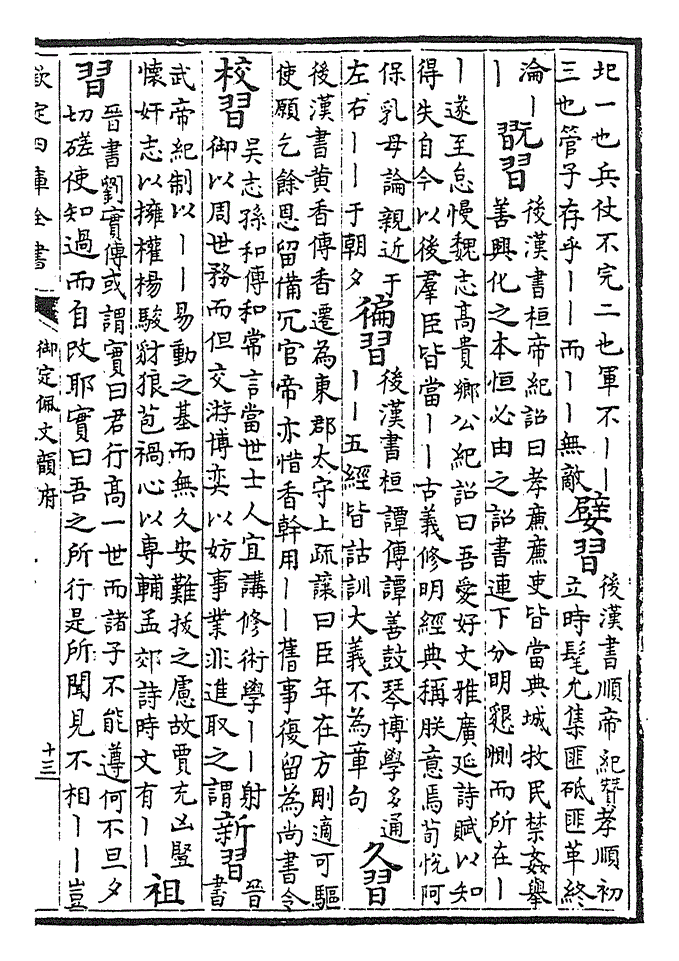 圯一也兵仗不完二也軍不丨丨
三也管子存乎丨丨而丨丨無敵
嬖習
後漢書順帝紀贊孝順初
立時髦允集匪砥匪革終
淪丨
丨
翫習
後漢書桓帝紀詔曰孝廉廉吏皆當典城牧民禁姦舉
善興化之本恒必由之詔書連下分明懇惻而所在丨
丨遂至怠慢魏志高貴鄉公紀詔曰吾愛好文雅廣延詩賦以知
得失自今以後羣臣皆當丨丨古義修明經典稱朕意焉荀悅阿
保乳母論親近于
左右丨丨于朝夕
徧習
後漢書桓譚傳譚善鼓琴博學多通
丨丨五經皆詁訓大義不為章句
久習
後漢書黃香傳香遷為東郡太守上疏讓曰臣年在方剛適可驅
使願乞餘恩留備冗官帝亦惜香幹用丨丨舊事復留為尚書令
校習
吳志孫和傳和常言當世士人宜講修術學丨丨射
御以周世務而但交游博奕以妨事業非進取之謂
新習
晉
書
武帝紀制以丨丨易動之基而無久安難拔之慮故賈充凶豎
懷奸志以擁權楊駿豺狼苞禍心以專輔孟郊詩時文有丨丨
祖
習
晉書劉實傳或謂實曰君行高一世而諸子不能遵何不旦夕
切磋使知過而自改耶實曰吾之所行是所聞見不相丨丨豈
欽定四庫全書
御定佩文韻府
十三